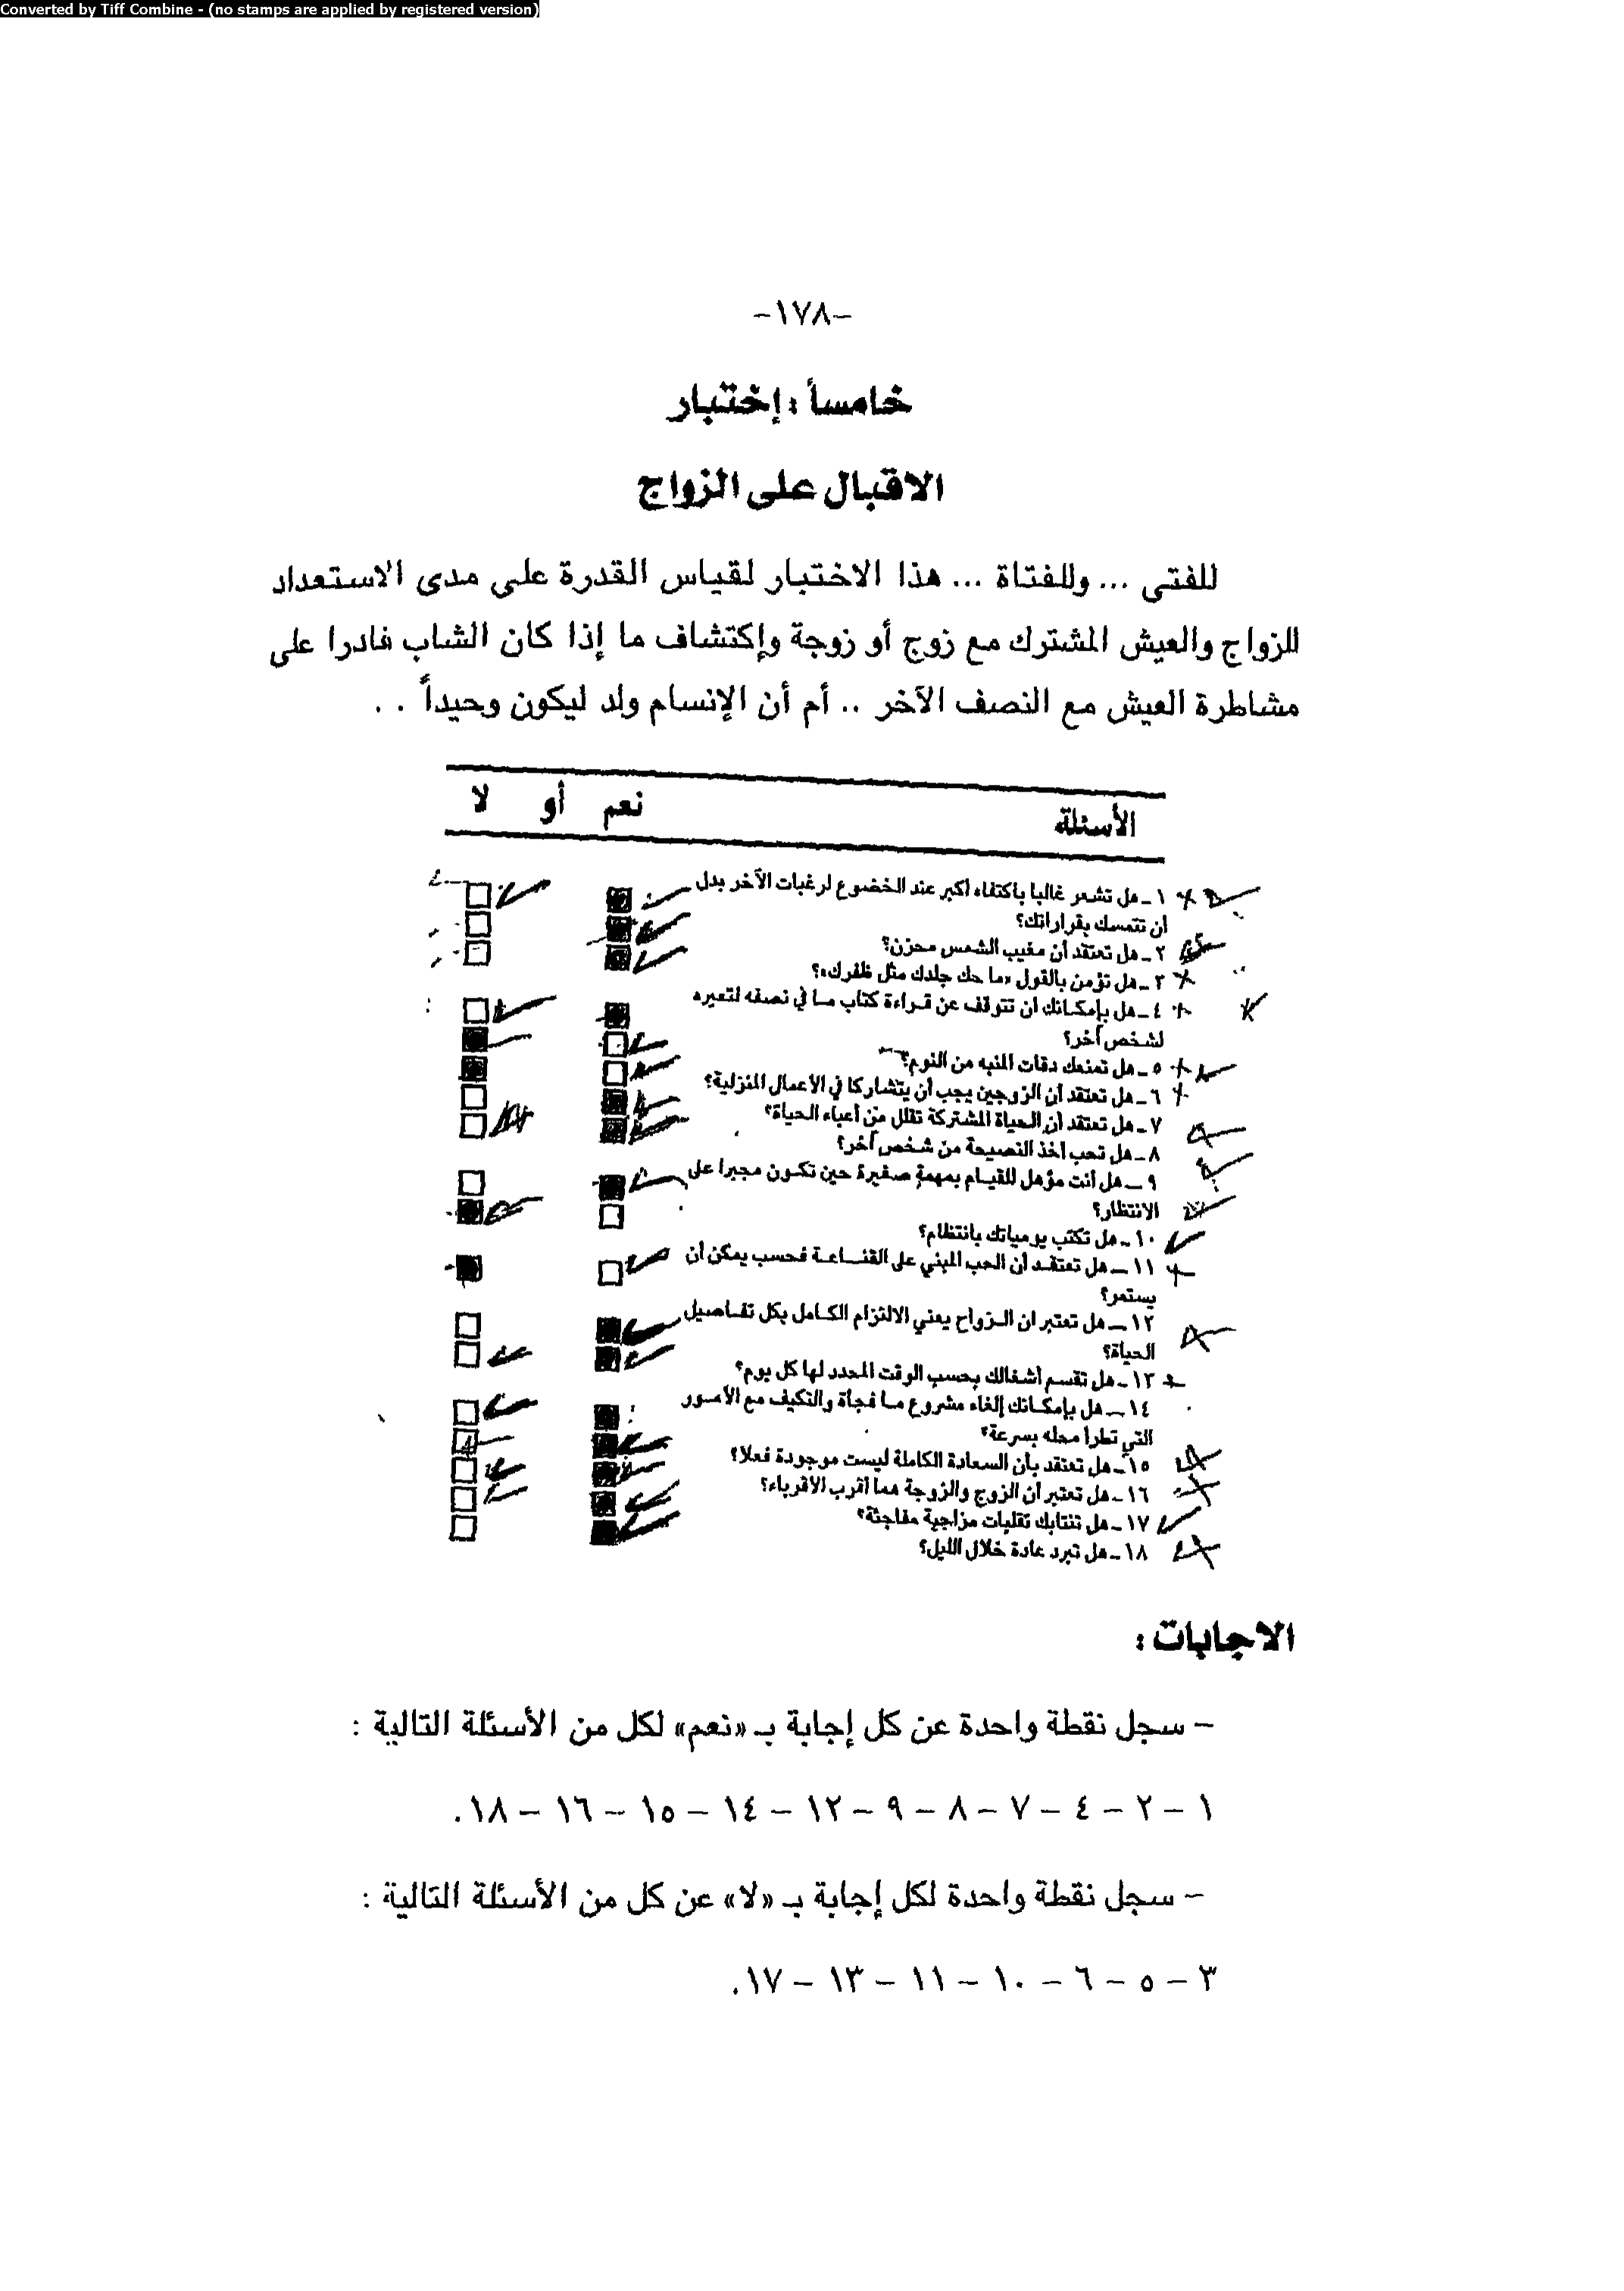 Converted by Tiff Combine - (no stamps are applied by registered version)
-١٧٨-
خامساً : إختبار
الاقبال على الزواج
للفتى ... وللفتاة ... هذا الاختبار لقياس القدرة على مدى الاستعداد
للزواج والعيش المشترك مع زوج أو زوجة وإكتشاف ما إذا كان الشاب قادرا على
مشاطرة العيش مع النصف الآخر .. أم أن الإنسام ولد ليكون وحيداً . .
الأسئلة نعم أو لا
١ ـ هل تشعر غالبا باكتفاء أكبر عند الخضوع لرغبات الآخر بدل
أن تتمسك بقراراتك؟
٢ ـ هل تعتقد أن مغيب الشمس محزن؟
٣ ـ هل تؤمن بالقول «ما حك جلدك مثل ظفرك»؟
٤ ـ هل بإمكانك أن تتوقف عن قراءة كتاب ما في نصفه لتعيره
لشخص آخر؟
٥ ـ هل تمنعك دقات المنبه من النوم؟
٦ ـ هل تعتقد أن الزوجين يجب أن يتشاركا في الأعمال المنزلية؟
٧ ـ هل تعتقد أن الحياة المشتركة تقلل من أعباء الحياة؟
٨ ـ هل تحب أخذ النصيحة من شخص آخر؟
٩ ـ هل أنت مؤهل للقيام بمهمة صغيرة حين تكون مجبرا على
الانتظار؟
١٠ ـ هل تكتب يومياتك بانتظام؟
١١ ـ هل تعتقد أن الحب المبني على القناعة فحسب يمكن أن
يستمر؟
١٢ ـ هل تعتبر ان الزواج يعني الالتزام الكامل بكل تفاصيل
الحياة؟
١٣ ـ هل تقسم أشغالك بحسب الوقت المحدد لها كل يوم؟
١٤ ـ هل بإمكانك إلغاء مشروع ما فجأة والتكيف مع الأمور
التي تطرأ محله بسرعة؟
١٥ ـ هل تعتقد بأن السعادة الكاملة ليست موجودة فعلا؟
١٦ ـ هل تعتبر أن الزوج والزوجة هما أقرب الأقرباء؟
١٧ ـ هل تنتابك تقلبات مزاجية مفاجئة؟
١٨ ـ هل تبرد عادة خلال الليل؟
الاجابات :
- سجل نقطة واحدة عن كل إجابة بـ «نعم» لكل من الأسئلة التالية :
١ - ٢ - ٤ - ٧ - ٨ - ٩ - ١٢ - ١٤ - ١٥ - ١٦ - ١٨.
- سجل نقطة واحدة لكل إجابة بـ «لا» عن كل من الأسئلة التالية :
٣ - ٥ - ٦ - ١٠ - ١١ - ١٣ - ١٧.